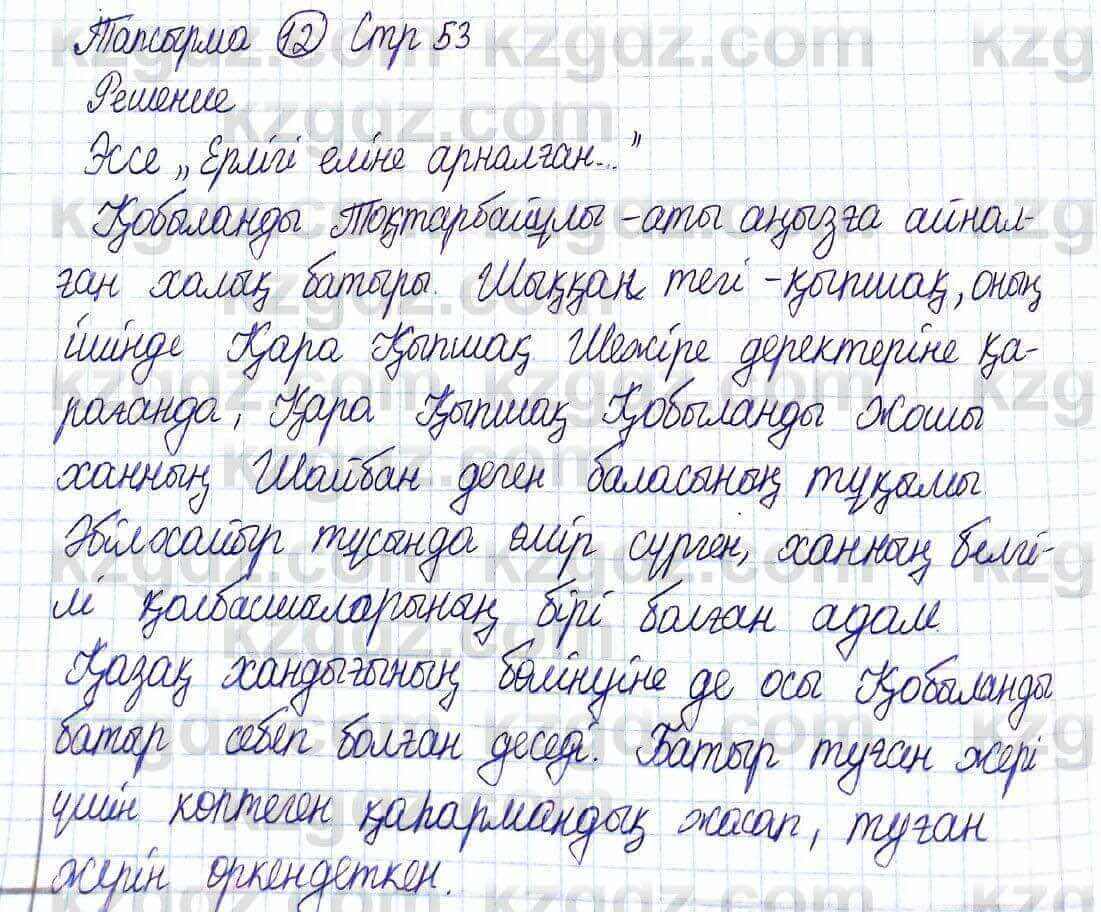 Тапсырма 12 Стр 53
Решение
Эссе „Ерлігі еліне арналған..."
Қобыланды Тоқтарбайұлы - аты аңызға айнал-
ған халық батыры. Шыққан тегі - қыпшақ, оның
ішінде Қара Қыпшақ. Шежіре деректеріне қа-
рағанда, Қара Қыпшақ Қобыланды Жошы
ханның Шайбан деген баласының тұқымы
Әбілхайыр тұсында өмір сүрген, ханның белгі-
лі қолбасшыларының бірі болған адам.
Қазақ хандығының бөлінуіне де осы Қобыланды
батыр себеп болған деседі. Батыр туған жері
үшін көптеген қаһармандық жасап, туған
жерін өркендеткен.